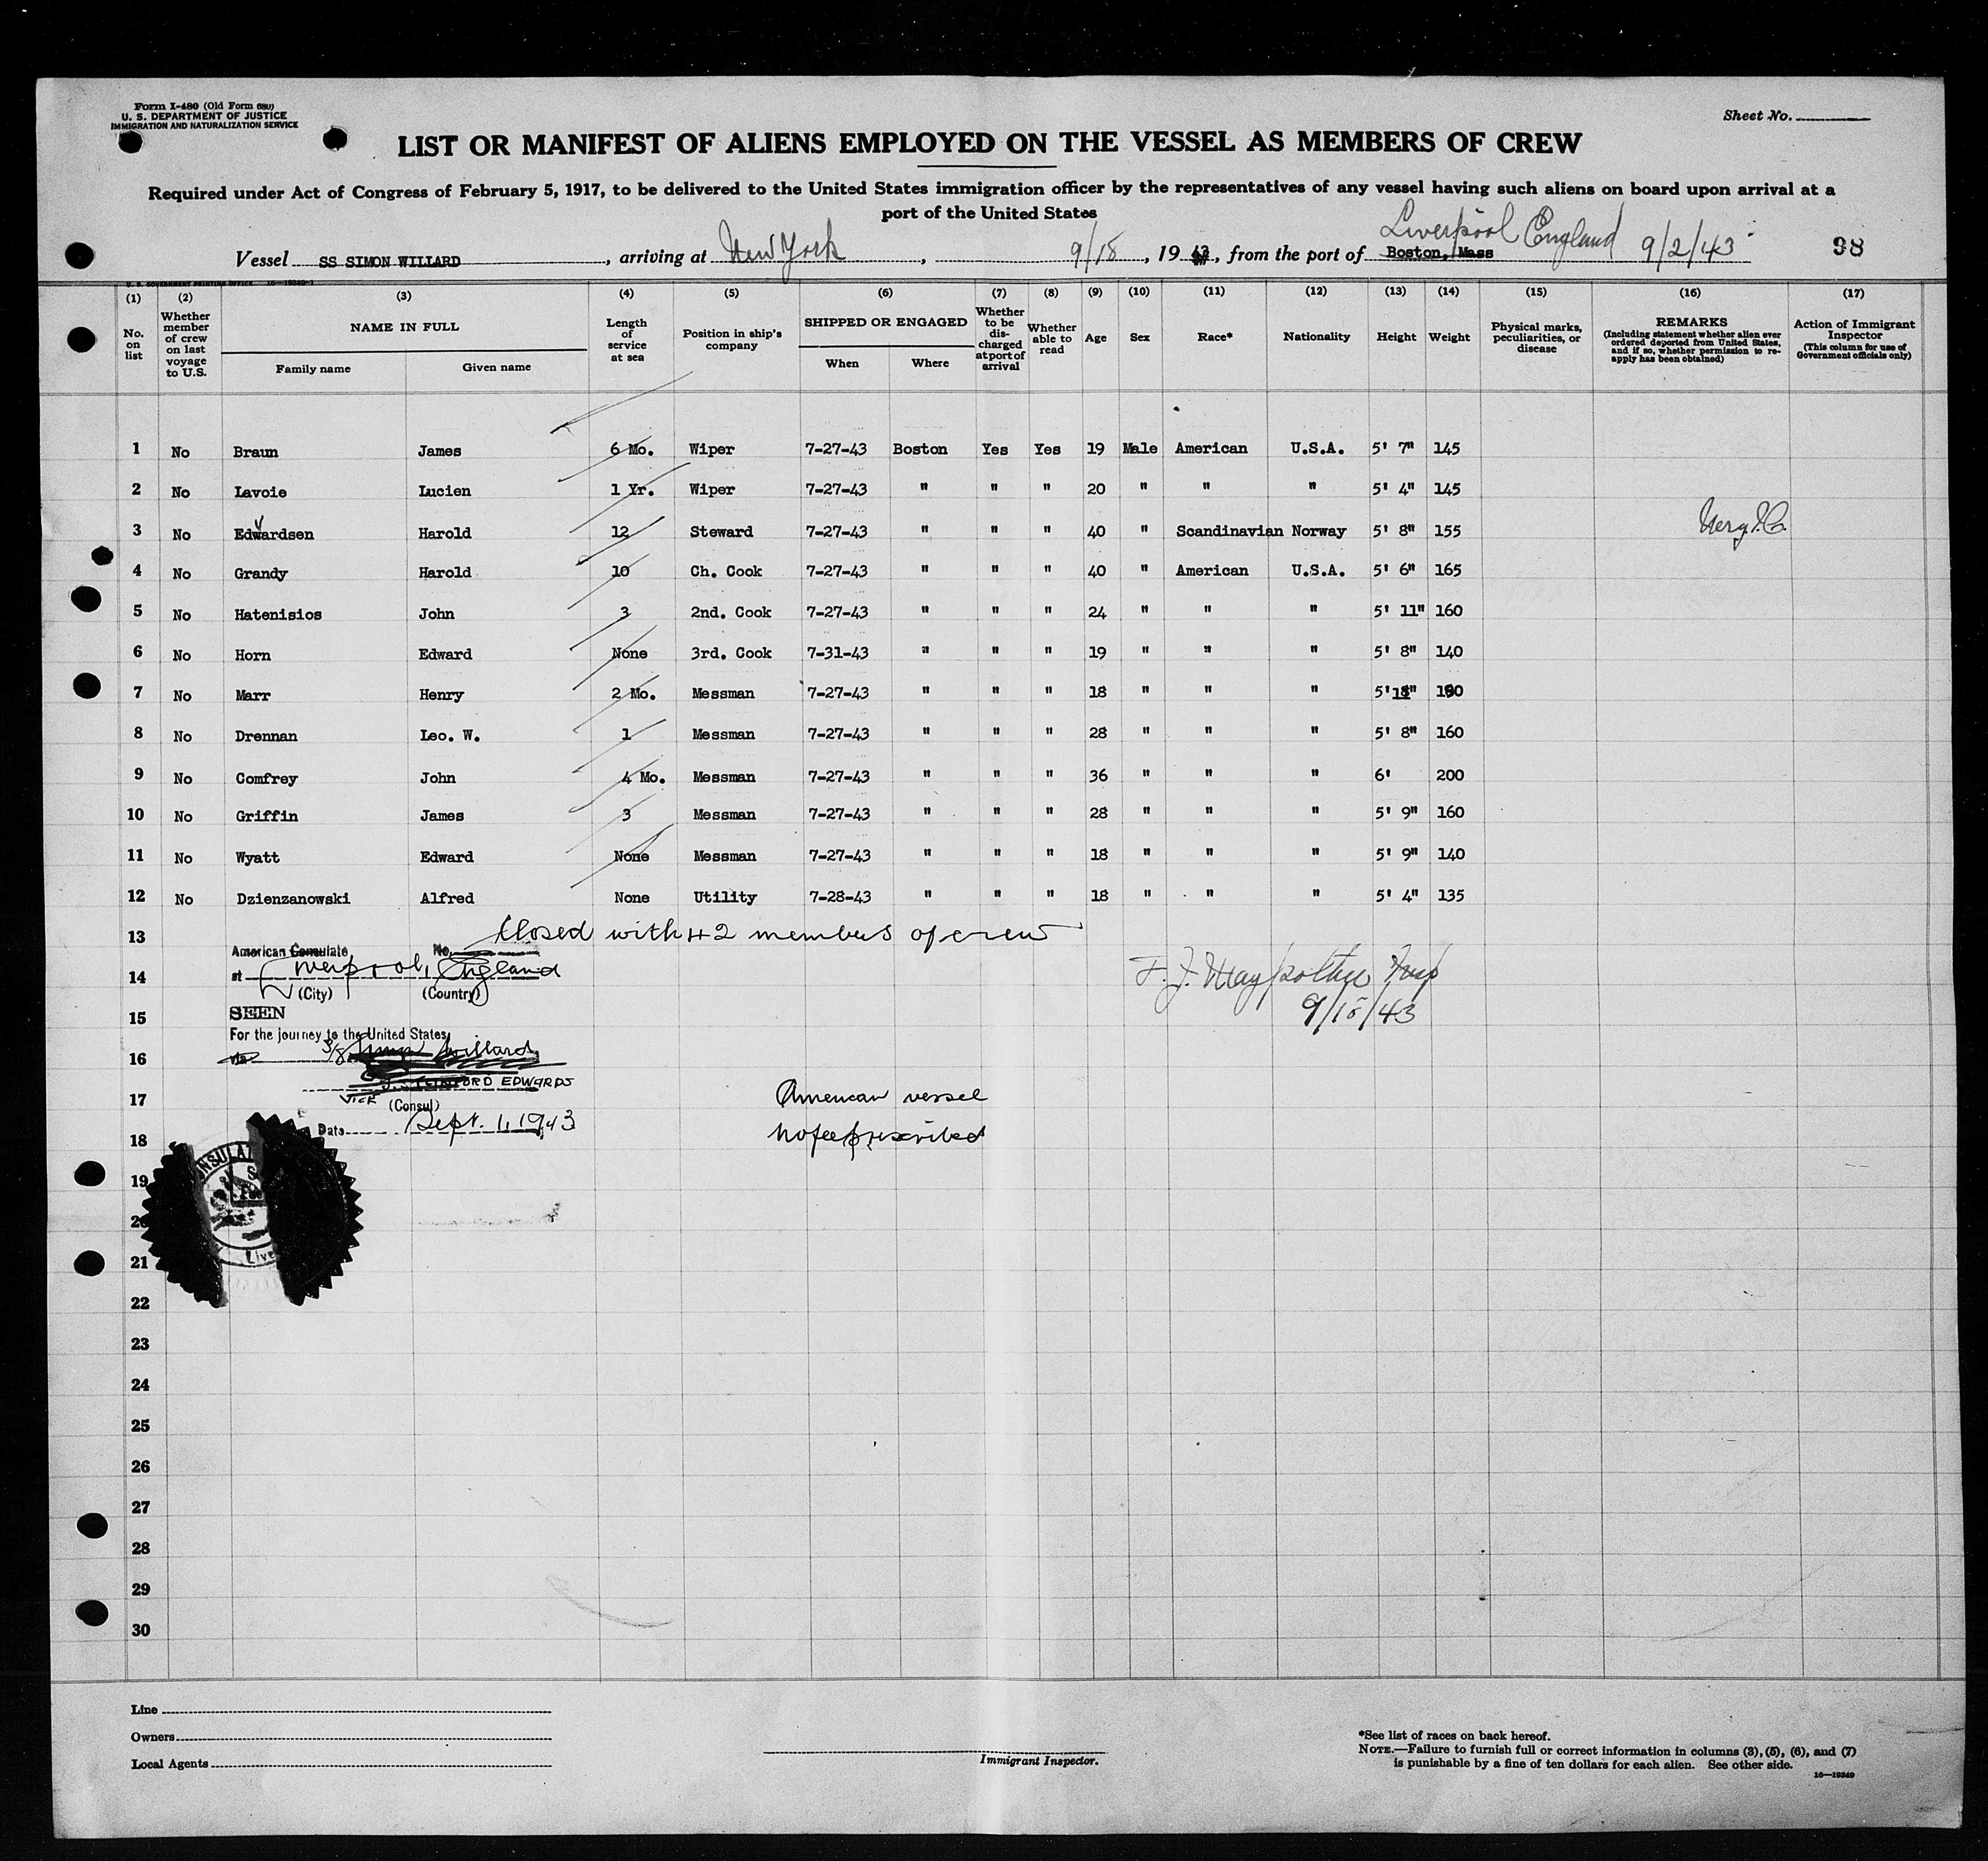 Form I-480 (Old Form 680)
U. S. DEPARTMENT OF JUSTICE
IMMIGRATION AND NATURALIZATION SERVICE
Sheet No.
LIST OR MANIFEST OF ALIENS EMPLOYED ON THE VESSEL AS MEMBERS OF CREW
Required under Act of Congress of February 5, 1917, to be delivered to the United States immigration officer by the representatives of any vessel having such aliens on board upon arrival at a
port of the United States
Liverpool England 9/2/43
Vessel SS SIMON WILLARD, arriving at New York, 9/18, 1943, from the port of Boston, Mass 98
U. S. GOVERNMENT PRINTING OFFICE 16-19349-1
(1) (2) (3) (4) (5) (6) (7) (8) (9) (10) (11) (12) (13) (14) (15) (16) (17)
No. on list
Whether member of crew on last voyage to U.S.
NAME IN FULL
Family name Given name
Length of service at sea
Position in ship's company
SHIPPED OR ENGAGED
When Where
Whether to be discharged at port of arrival
Whether able to read
Age
Sex
Race*
Nationality
Height
Weight
Physical marks, peculiarities, or disease
REMARKS
(Including statement whether alien ever ordered deported from United States, and if so, whether permission to reapply has been obtained)
Action of Immigrant Inspector
(This column for use of Government officials only)
1 No Braun James 6 Mo. Wiper 7-27-43 Boston Yes Yes 19 Male American U.S.A. 5' 7" 145
2 No Lavoie Lucien 1 Yr. Wiper 7-27-43 " " " 20 " " " 5' 4" 145
3 No Edwardsen Harold 12 Steward 7-27-43 " " " 40 " Scandinavian Norway 5' 8" 155
4 No Grandy Harold 10 Ch. Cook 7-27-43 " " " 40 " American U.S.A. 5' 6" 165
5 No Hatenisios John 3 2nd. Cook 7-27-43 " " " 24 " " " 5' 11" 160
6 No Horn Edward None 3rd. Cook 7-31-43 " " " 19 " " " 5' 8" 140
7 No Marr Henry 2 Mo. Messman 7-27-43 " " " 18 " " " 5'
8 No Drennan Leo. W. 1 Messman 7-27-43 " " " 28 " " " 5' 8" 160
9 No Comfrey John 4 Mo. Messman 7-27-43 " " " 36 " " " 6' 200
10 No Griffin James 3 Messman 7-27-43 " " " 28 " " " 5' 9" 160
11 No Wyatt Edward None Messman 7-27-43 " " " 18 " " " 5' 9" 140
12 No Dzienzanowski Alfred None Utility 7-28-43 " " " 18 " " " 5' 4" 135
13 Closed with 42 members of crew
American Consulate No.
14 at Liverpool, England
(City) (Country)
9/18/43
15 SEEN
For the journey to the United States
16 via S/S Simon Willard
EDWARDS
17 VICE (Consul) American vessel
Date Sept. 1, 1943
18 No fee prescribed
19
20
21
22
23
24
25
26
27
28
29
30
Line
Owners
Local Agents
Immigrant Inspector.
*See list of races on back hereof.
NOTE.—Failure to furnish full or correct information in columns (3), (5), (6), and (7)
is punishable by a fine of ten dollars for each alien. See other side.
16—19349